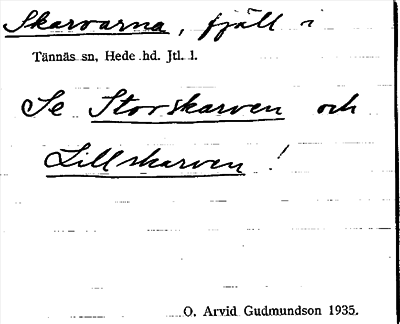 Skarvarna, fjäll i
Tännäs sn, Hede hd. Jtl. l.
Se Storskarven och
Lillskarven!
O. Arvid Gudmundson 1935.